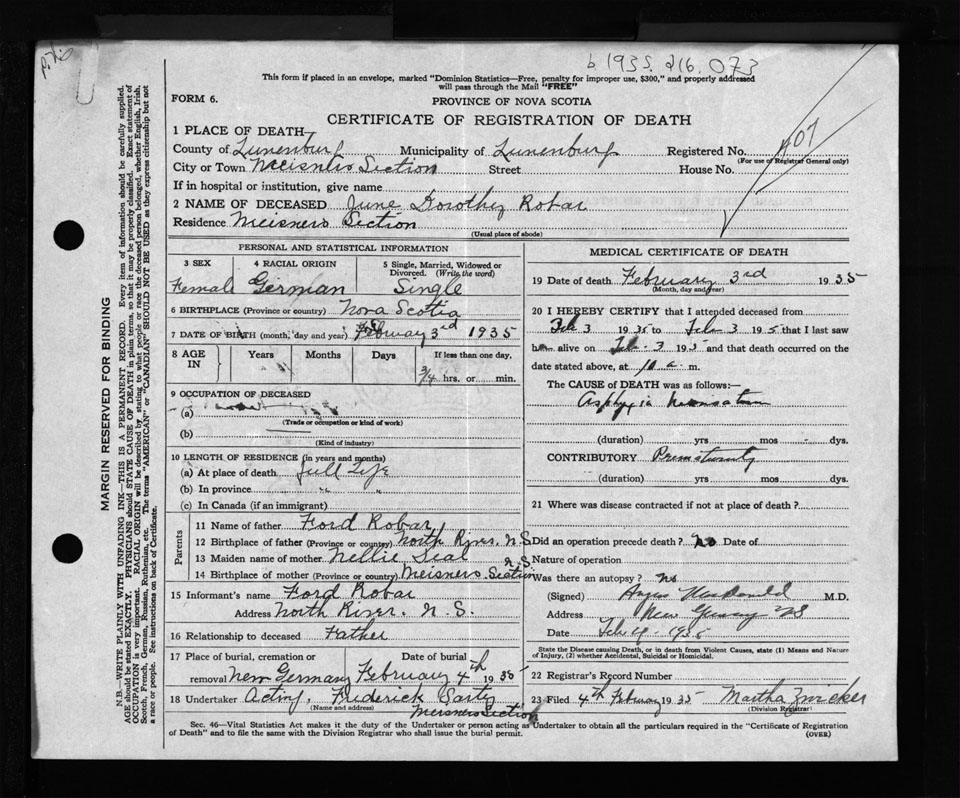 b 1935. 216. 073
This form if placed in an envelope, marked "Dominion Statistics—Free, penalty for improper use, $300," and properly addressed
will pass through the Mail "FREE"
FORM 6.
PROVINCE OF NOVA SCOTIA
CERTIFICATE OF REGISTRATION OF DEATH
407
1 PLACE OF DEATH—
County of Lunenburg Municipality of Lunenburg Registered No.
(For use of Registrar General only)
City or Town Meisners Section Street House No.
If in hospital or institution, give name
2 NAME OF DECEASED June Dorothy Robar
Residence Meisners Section
(Usual place of abode)
PERSONAL AND STATISTICAL INFORMATION
3 SEX 4 RACIAL ORIGIN 5 Single, Married, Widowed or Divorced. (Write the word)
Female German Single
6 BIRTHPLACE (Province or country) Nova Scotia
7 DATE OF BIRTH (month, day and year) February 3rd 1935
8 AGE IN Years Months Days If less than one day,
3/4 hrs. or min.
9 OCCUPATION OF DECEASED
(a)
(Trade or occupation or kind of work)
(b)
(Kind of industry)
10 LENGTH OF RESIDENCE (in years and months)
(a) At place of death Full Life
(b) In province " "
(c) In Canada (if an immigrant)
Parents
11 Name of father Ford Robar
12 Birthplace of father (Province or country) North River. N.S.
13 Maiden name of mother Nellie Seal
14 Birthplace of mother (Province or country) Meisners Section N.S.
15 Informant's name Ford Robar
Address North River. N.S.
16 Relationship to deceased Father
17 Place of burial, cremation or removal New Germany Date of burial February 4th 1935
18 Undertaker Acting. Frederick Sarty
(Name and address) Meisners Section
MEDICAL CERTIFICATE OF DEATH
19 Date of death February 3rd 1935
(Month, day and year)
20 I HEREBY CERTIFY that I attended deceased from
Feb 3 1935 to Feb 3 1935 that I last saw
h alive on Feb. 3 1935 and that death occurred on the
date stated above, at 10 a. m.
The CAUSE of DEATH was as follows:—
Asphyxia Neonatorum
(duration) yrs mos dys.
CONTRIBUTORY Prematurity
(duration) yrs mos dys.
21 Where was disease contracted if not at place of death?
Did an operation precede death? No Date of
Nature of operation
Was there an autopsy? No
(Signed) Angus MacDonald M.D.
Address New Germany NS
Date Feb 4 - 1935
State the Disease causing Death, or in death from Violent Causes, state (1) Means and Nature
of Injury, (2) whether Accidental, Suicidal or Homicidal.
22 Registrar's Record Number
23 Filed 4th February 1935 Martha Zwicker
(Division Registrar)
Sec. 46—Vital Statistics Act makes it the duty of the Undertaker or person acting as Undertaker to obtain all the particulars required in the "Certificate of Registration
of Death" and to file the same with the Division Registrar who shall issue the burial permit.
(OVER)
MARGIN RESERVED FOR BINDING
N.B.—WRITE PLAINLY WITH UNFADING INK—THIS IS A PERMANENT RECORD. Every item of information should be carefully supplied.
AGE should be stated EXACTLY. PHYSICIANS should STATE CAUSE OF DEATH in plain terms, so that it may be properly classified. Exact statement of
OCCUPATION is very important. RACIAL ORIGIN will be described by stating to what people or race the deceased person belonged, whether English, Irish,
Scotch, French, German, Russian, Ruthenian, etc. The terms "AMERICAN" or "CANADIAN" SHOULD NOT BE USED as they express citizenship but not
a race or people. See instructions on back of Certificate.